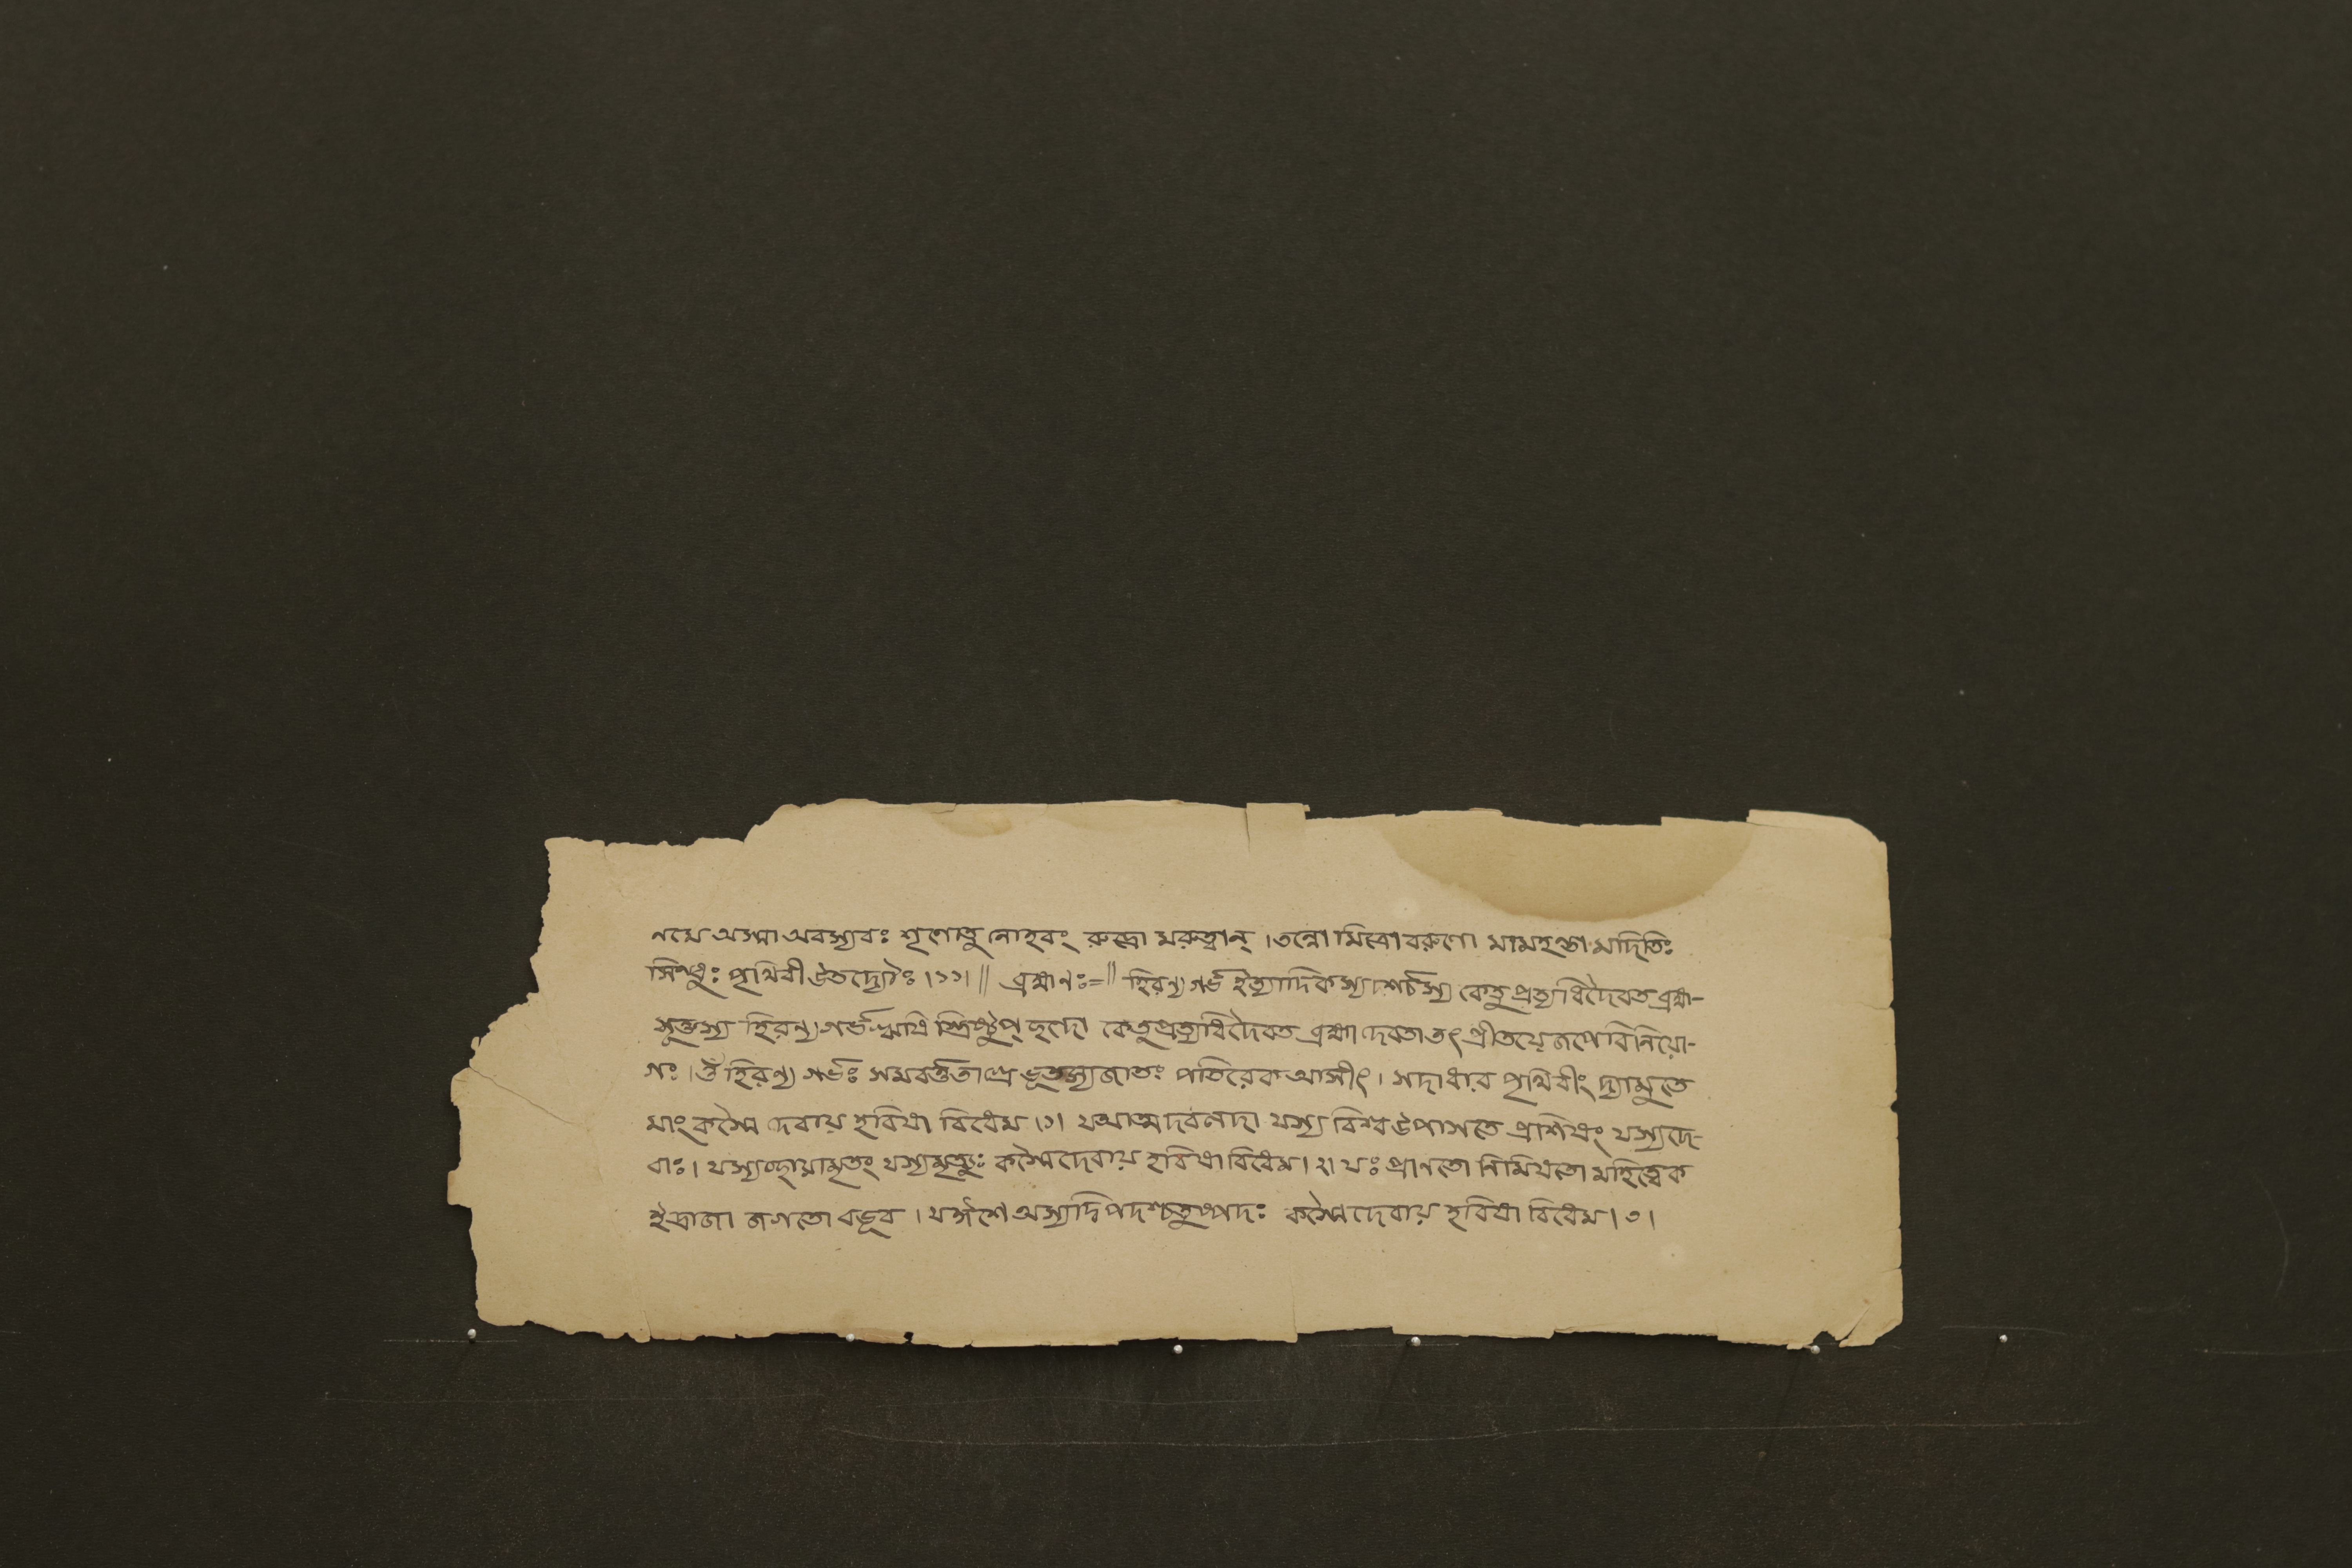 ণমো অস্মা অবস্যবঃ শৃণোতু নোহবং রুদ্রো মরুত্বান্ । তন্নো মিত্রো বরুণো মামহন্তা মাদিতিঃ
সিন্ধুঃ পৃথিবী উতদ্যৌঃ ।১১। ॥ ব্রহ্মণঃ=॥ হিরণ্যগর্ভ ইত্যাদিকস্য দশর্চস্য কেতু প্রত্যধিদৈবত ব্রহ্ম-
সূক্তস্য হিরণ্যগর্ভঋষি স্ত্রিষ্টুপ্ ছন্দো কেতুপ্রত্যধিদৈবত ব্রহ্মা দেবতা তৎ প্রীতয়ে জপে বিনিয়ো-
গঃ । ওঁ হিরণ্য গর্ভঃ সমবর্ত্ততাগ্রে ভূতস্যজাতঃ পতিরেক আসীৎ । সদাধার পৃথিবীং দ্যামুতে
মাং কস্মৈ দেবায় হবিষা বিধেম ।১। যআত্মদাবলদা যস্য বিশ্ব উপাসতে প্রশিষং যস্যদে-
বাঃ । যস্যচ্ছায়ামৃতং যস্যমৃত্যুঃ কস্মৈদেবায় হবিষা বিধেম । ২। যঃ প্রাণতো নিমিষতো মহিত্বৈক
ইদ্রাজা জগতো বভূব । যঈশে অস্যদ্বিপদশ্চতুষ্পদঃ কস্মৈদেবায় হবিষা বিধেম । ৩ ।